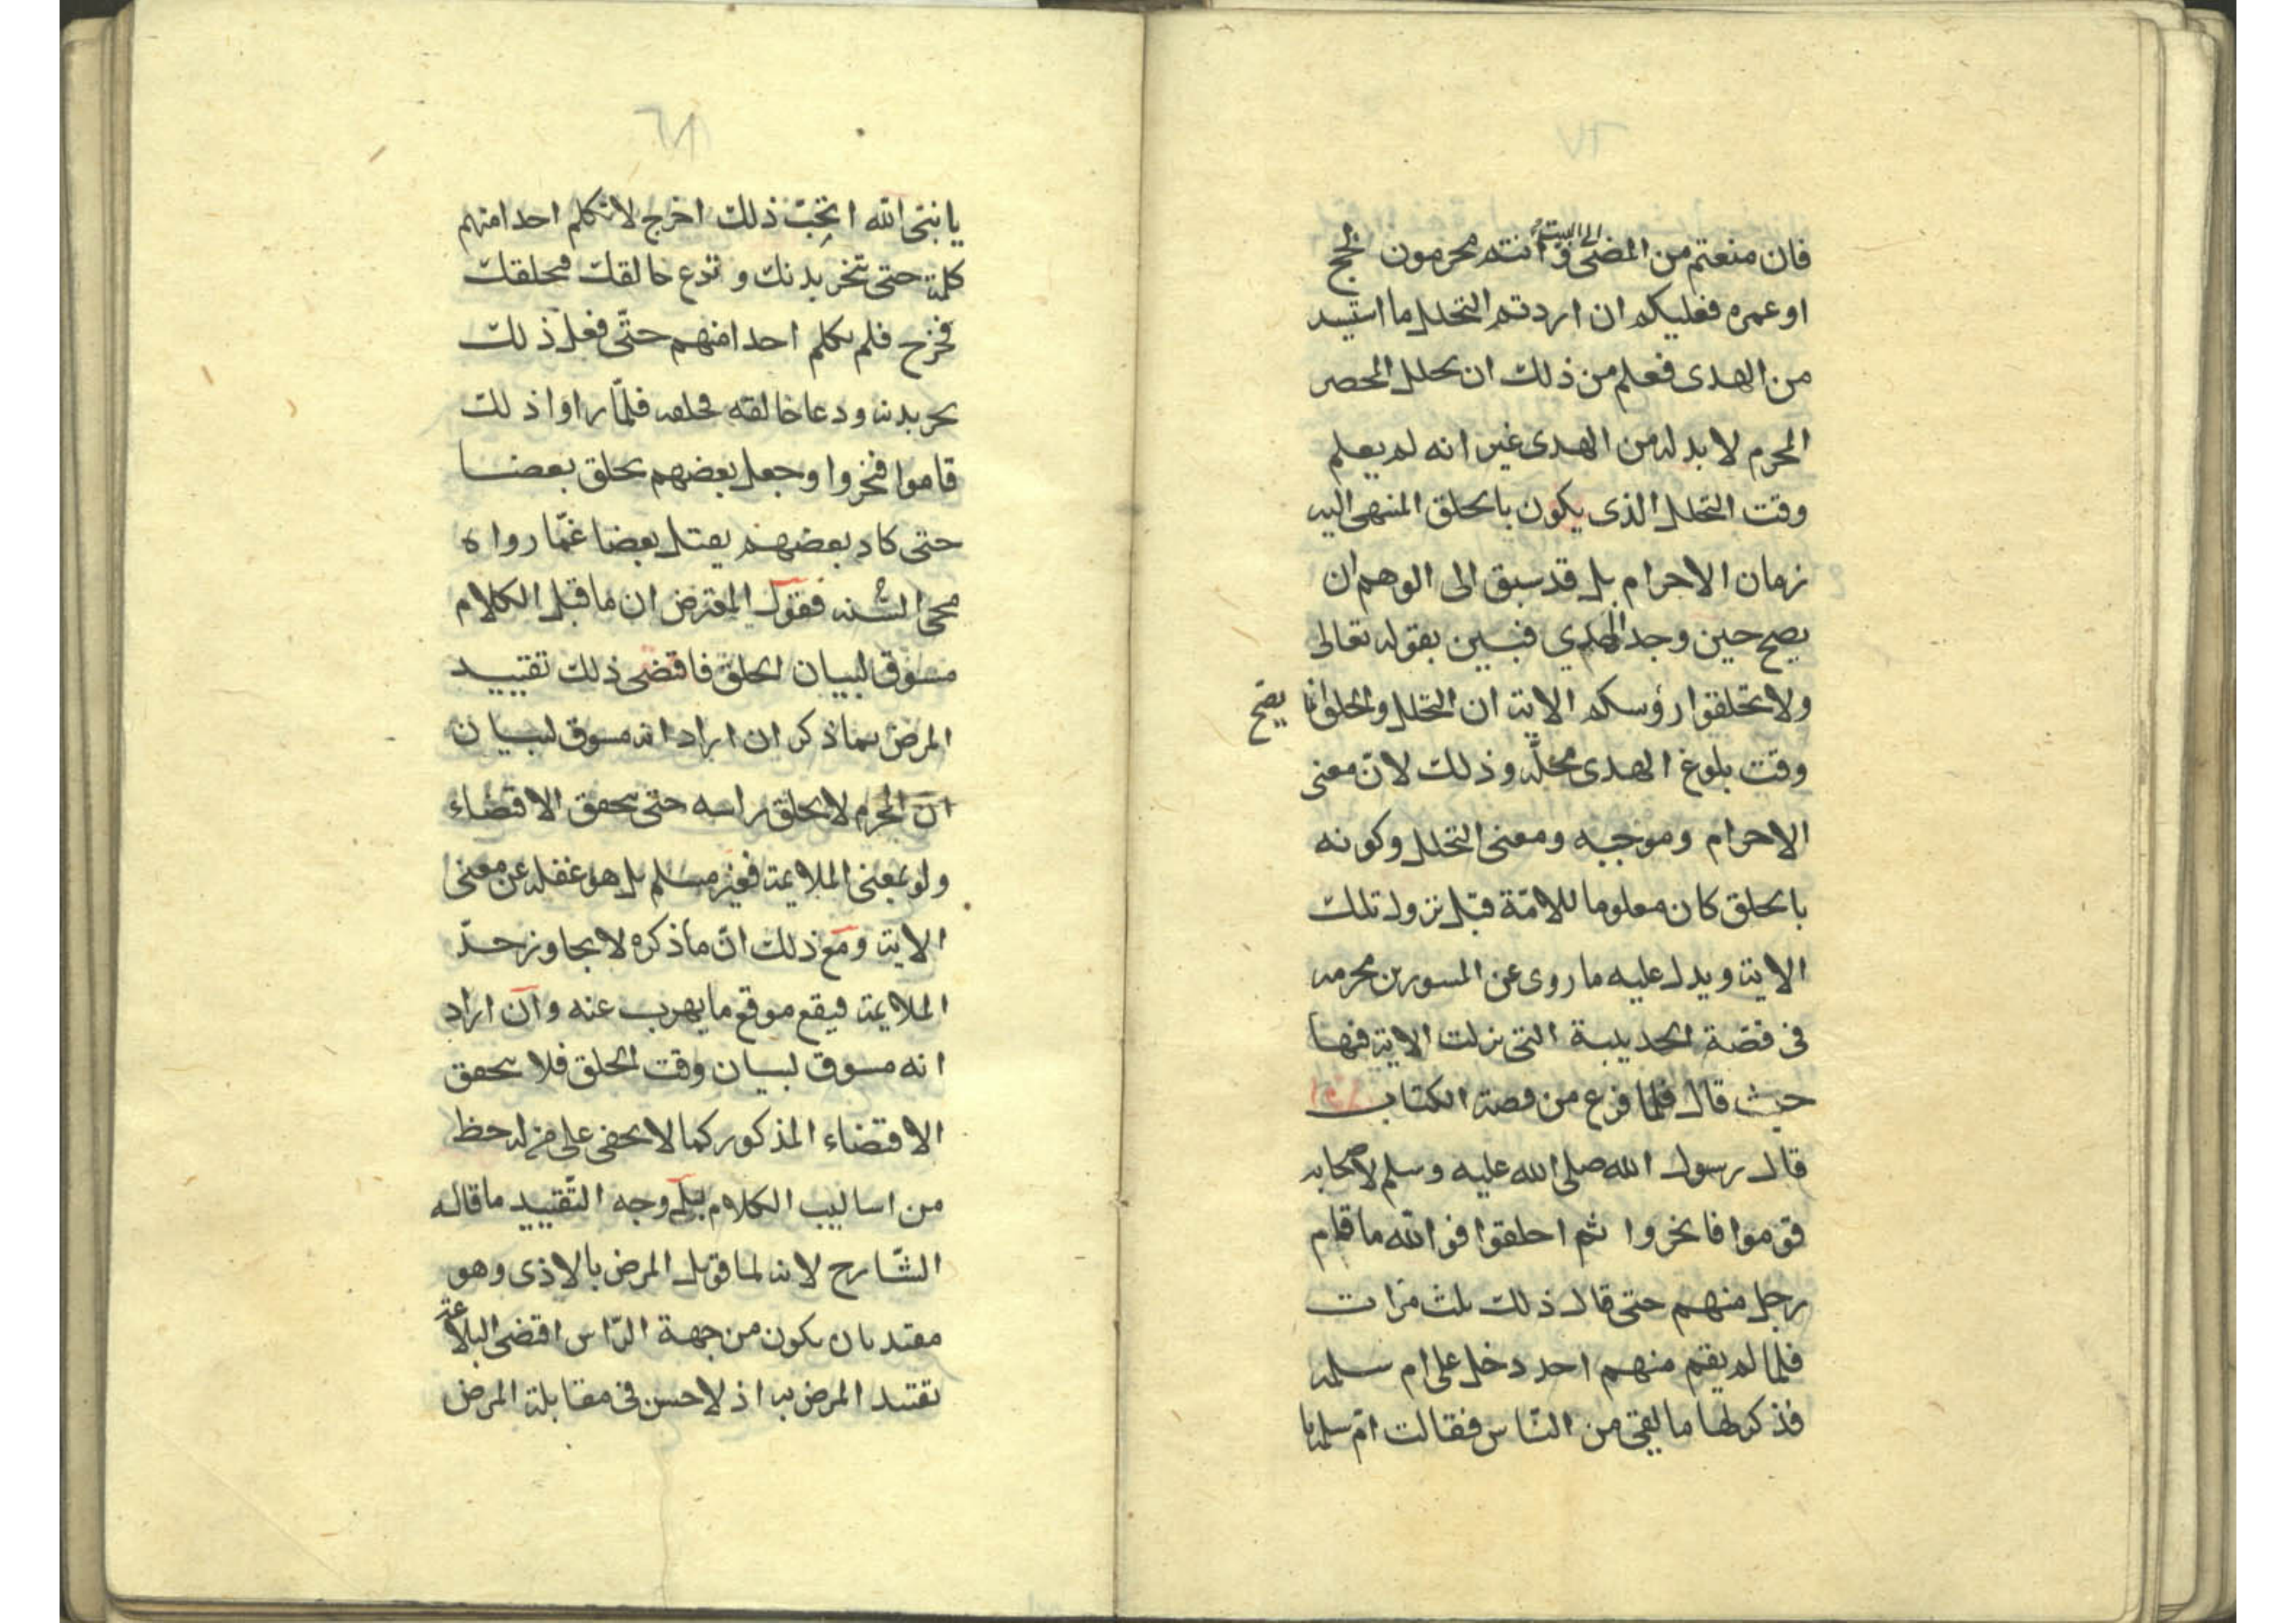 فان منعتم من المضى الى البيت و انتم محرمون لحج
او عمره فعليكم ان اردتم التحلل ما استيسر
من الهدى فعلم من ذلك ان تحلل المحصر
المحرم لا بد له من الهدى غير انه لم يعلم
وقت التحلل الذى يكون بالحلق المنهى اليه
زمان الاحرام بل قد سبق الى الوهم ان
يصح حين وجد الهدي فبين بقوله تعالى
ولا تحلقوا رؤسكم الاية ان التحلل والحلق انما يصح
وقت بلوغ الهدى محله وذلك لان معنى
الاحرام وموجبه ومعنى التحلل وكونه
بالحلق كان معلوما للامّة قبل نزول تلك
الاية ويدل عليه ما روى عن المسور بن مخرمه
فى قصّة الحديبية التى نزلت الاية فيها
حيث قال فلما فرغ من قصة الكتاب
قال رسول الله صلى الله عليه وسلم لاصحابه
قوموا فانحروا ثم احلقوا فو الله ما قام
رجل منهم حتى قال ذلك ثلث مرات
فلما لم يقم منهم احد دخل على ام سلمه
فذكر لها ما لقى من النّاس فقالت امّ سلمة يا
٧٢
يا نبىّ الله اتحبّ ذلك اخرج لا تكلم احدا منهم
كلمة حتى تنحر بدنك و تدع حالقك فيحلقك
فخرج فلم يكلم احدا منهم حتّى فعل ذلك
نحر بدنه ودعا حالقه فحلقه فلمّا راوا ذلك
قاموا فنحروا وجعل بعضهم يحلق بعضا
حتى كاد بعضهم يقتل بعضا غمّا رواه
محى السّنه فقول المعترض ان ما قبل الكلام
مسوق لبيان الحلق فاقتضى ذلك تقييد
المرض بما ذكر ان اراد انه مسوق لبيان
ان المحرم لا يحلق راسه حتى يتحقق الاقتضاء
ولو بمعنى الملايمة فغير مسلم بل هو غفلة عن معنى
الاية ومع ذلك انّ ما ذكره لا يجاوز حدّ
الملايمة فيقع موقع ما يهرب عنه وان اراد
انه مسوق لبيان وقت الحلق فلا يتحقق
الاقتضاء المذكور كما لا يخفى على من له حظ
من اساليب الكلام بل وجه التّقييد ما قاله
الشّارح لانه لما قوبل المرض بالاذى وهو
مقيد بان يكون من جهة الرّاس اقتضى البلاغة
تقييد المرض به اذ لا حسن فى مقابلة المرض